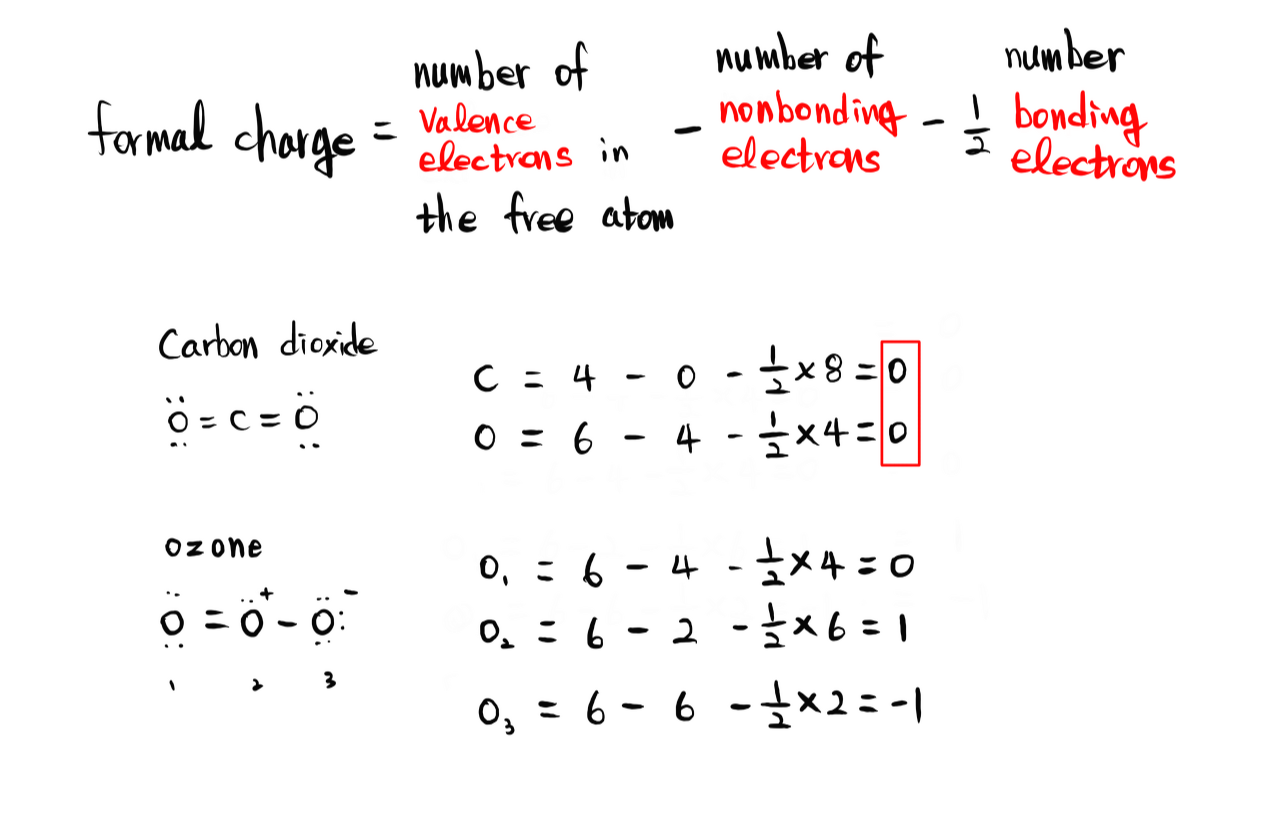 formal charge = number of valence electrons in the free atom - number of nonbonding electrons - 1/2 number bonding electrons
Carbon dioxide
Ö = C = Ö
C = 4 - 0 - 1/2 × 8 = 0
O = 6 - 4 - 1/2 × 4 = 0
ozone
Ö = Ö⁺ - Ö:⁻
1 2 3
O₁ = 6 - 4 - 1/2 × 4 = 0
O₂ = 6 - 2 - 1/2 × 6 = 1
O₃ = 6 - 6 - 1/2 × 2 = -1